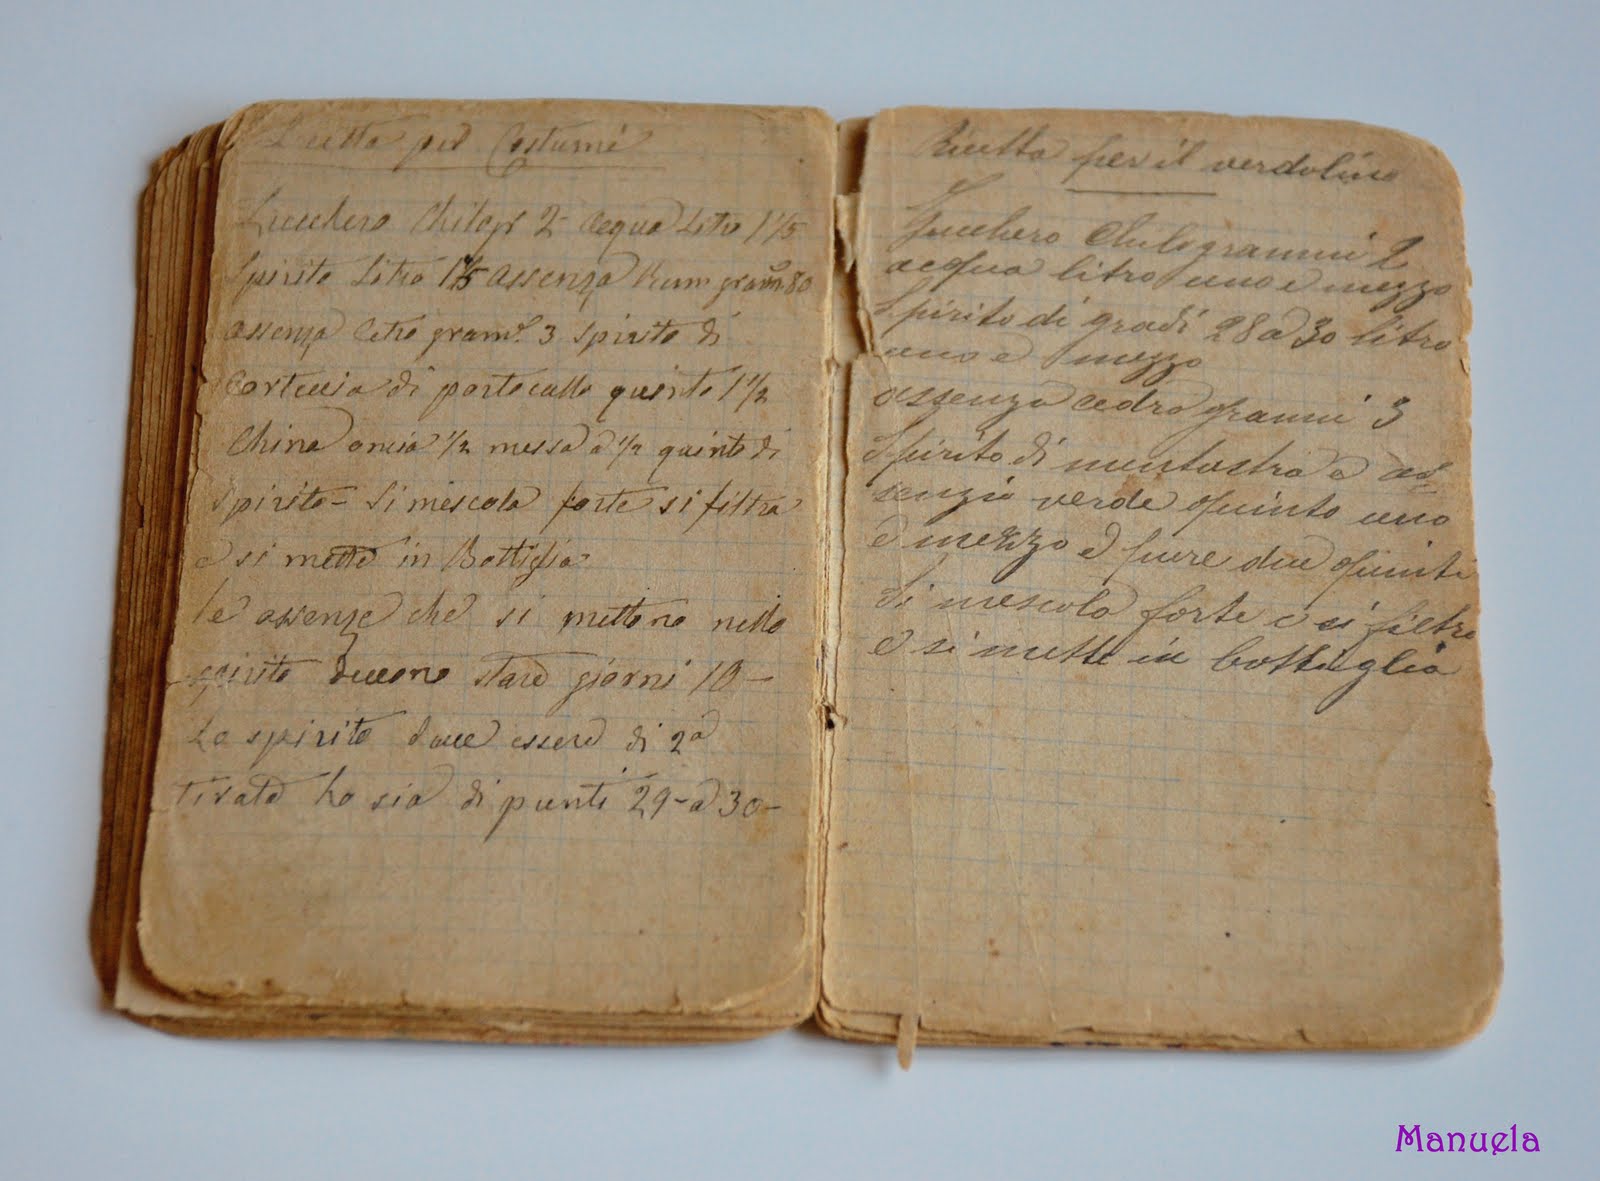 Ricetta per Costumè
Zucchero Chilogr 2 - Acqua Litro 1 1/5
Spirito Litro 1 1/5 assenza Rum gram. 80
assenza Cetro gram. 3 spirito di
Corteccia di portocallo quinto 1 1/2
China oncia 1/2 messa a 1/2 quinto di
spirito - Si mescola forte si filtra
e si mette in Bottiglia
le assenze che si mettono nello
spirito devono stare giorni 10 -
Lo spirito deve essere di 2a
tirata ho sia di punti 29 - a 30 -
Ricetta per il verdolino
Zucchero Chilogrammi 2
acqua litro uno e mezzo
Spirito di gradi 28 a 30 litro
uno e mezzo
assenza cedro grammi 3
Spirito di mentastra e as=
senzio verde quinto uno
e mezzo e pure due quinti
Si mescola forte e si filtra
e si mette in bottiglia
Manuela